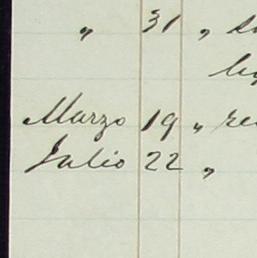 " 31 "
Marzo 19 "
Julio 22 "